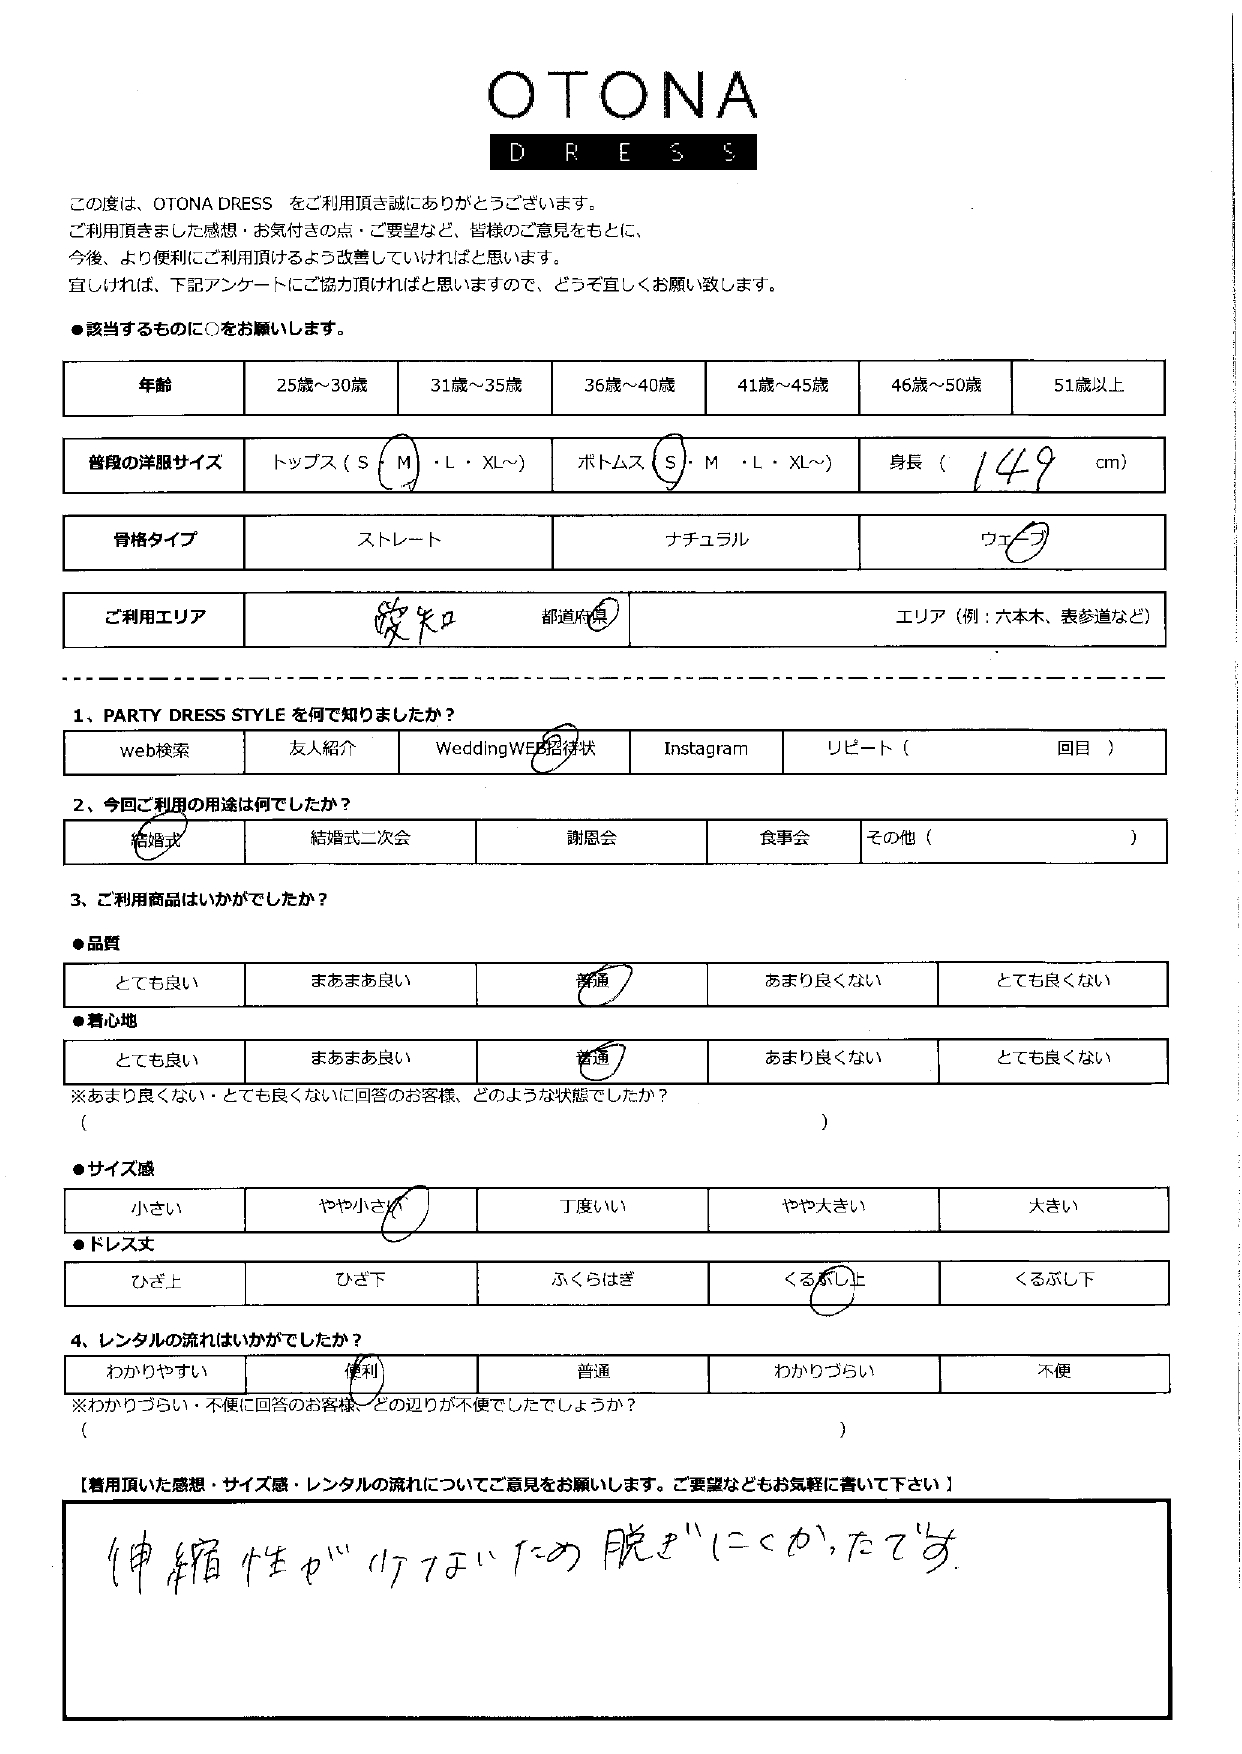 OTONA
DRESS
この度は、OTONA DRESS　をご利用頂き誠にありがとうございます。
ご利用頂きました感想・お気付きの点・ご要望など、皆様のご意見をもとに、
今後、より便利にご利用頂けるよう改善していければと思います。
宜しければ、下記アンケートにご協力頂ければと思いますので、どうぞ宜しくお願い致します。
●該当するものに○をお願いします。
年齢 25歳～30歳 31歳～35歳 36歳～40歳 41歳～45歳 46歳～50歳 51歳以上
普段の洋服サイズ トップス ( S ・ M ・L ・ XL～) ボトムス ( S ・ M ・L ・ XL～) 身長 ( 149 cm)
骨格タイプ ストレート ナチュラル ウェーブ
ご利用エリア 愛知 都道府県 エリア（例：六本木、表参道など）
1、PARTY DRESS STYLE を何で知りましたか？
web検索 友人紹介 WeddingWEB招待状 Instagram リピート（ 回目 ）
2、今回ご利用の用途は何でしたか？
結婚式 結婚式二次会 謝恩会 食事会 その他（ ）
3、ご利用商品はいかがでしたか？
●品質
とても良い まあまあ良い 普通 あまり良くない とても良くない
●着心地
とても良い まあまあ良い 普通 あまり良くない とても良くない
※あまり良くない・とても良くないに回答のお客様、どのような状態でしたか？
( )
●サイズ感
小さい やや小さい 丁度いい やや大きい 大きい
●ドレス丈
ひざ上 ひざ下 ふくらはぎ くるぶし上 くるぶし下
4、レンタルの流れはいかがでしたか？
わかりやすい 便利 普通 わかりづらい 不便
※わかりづらい・不便に回答のお客様、どの辺りが不便でしたでしょうか？
( )
【着用頂いた感想・サイズ感・レンタルの流れについてご意見をお願いします。ご要望などもお気軽に書いて下さい 】
伸縮性が少ないため脱ぎにくかったです.